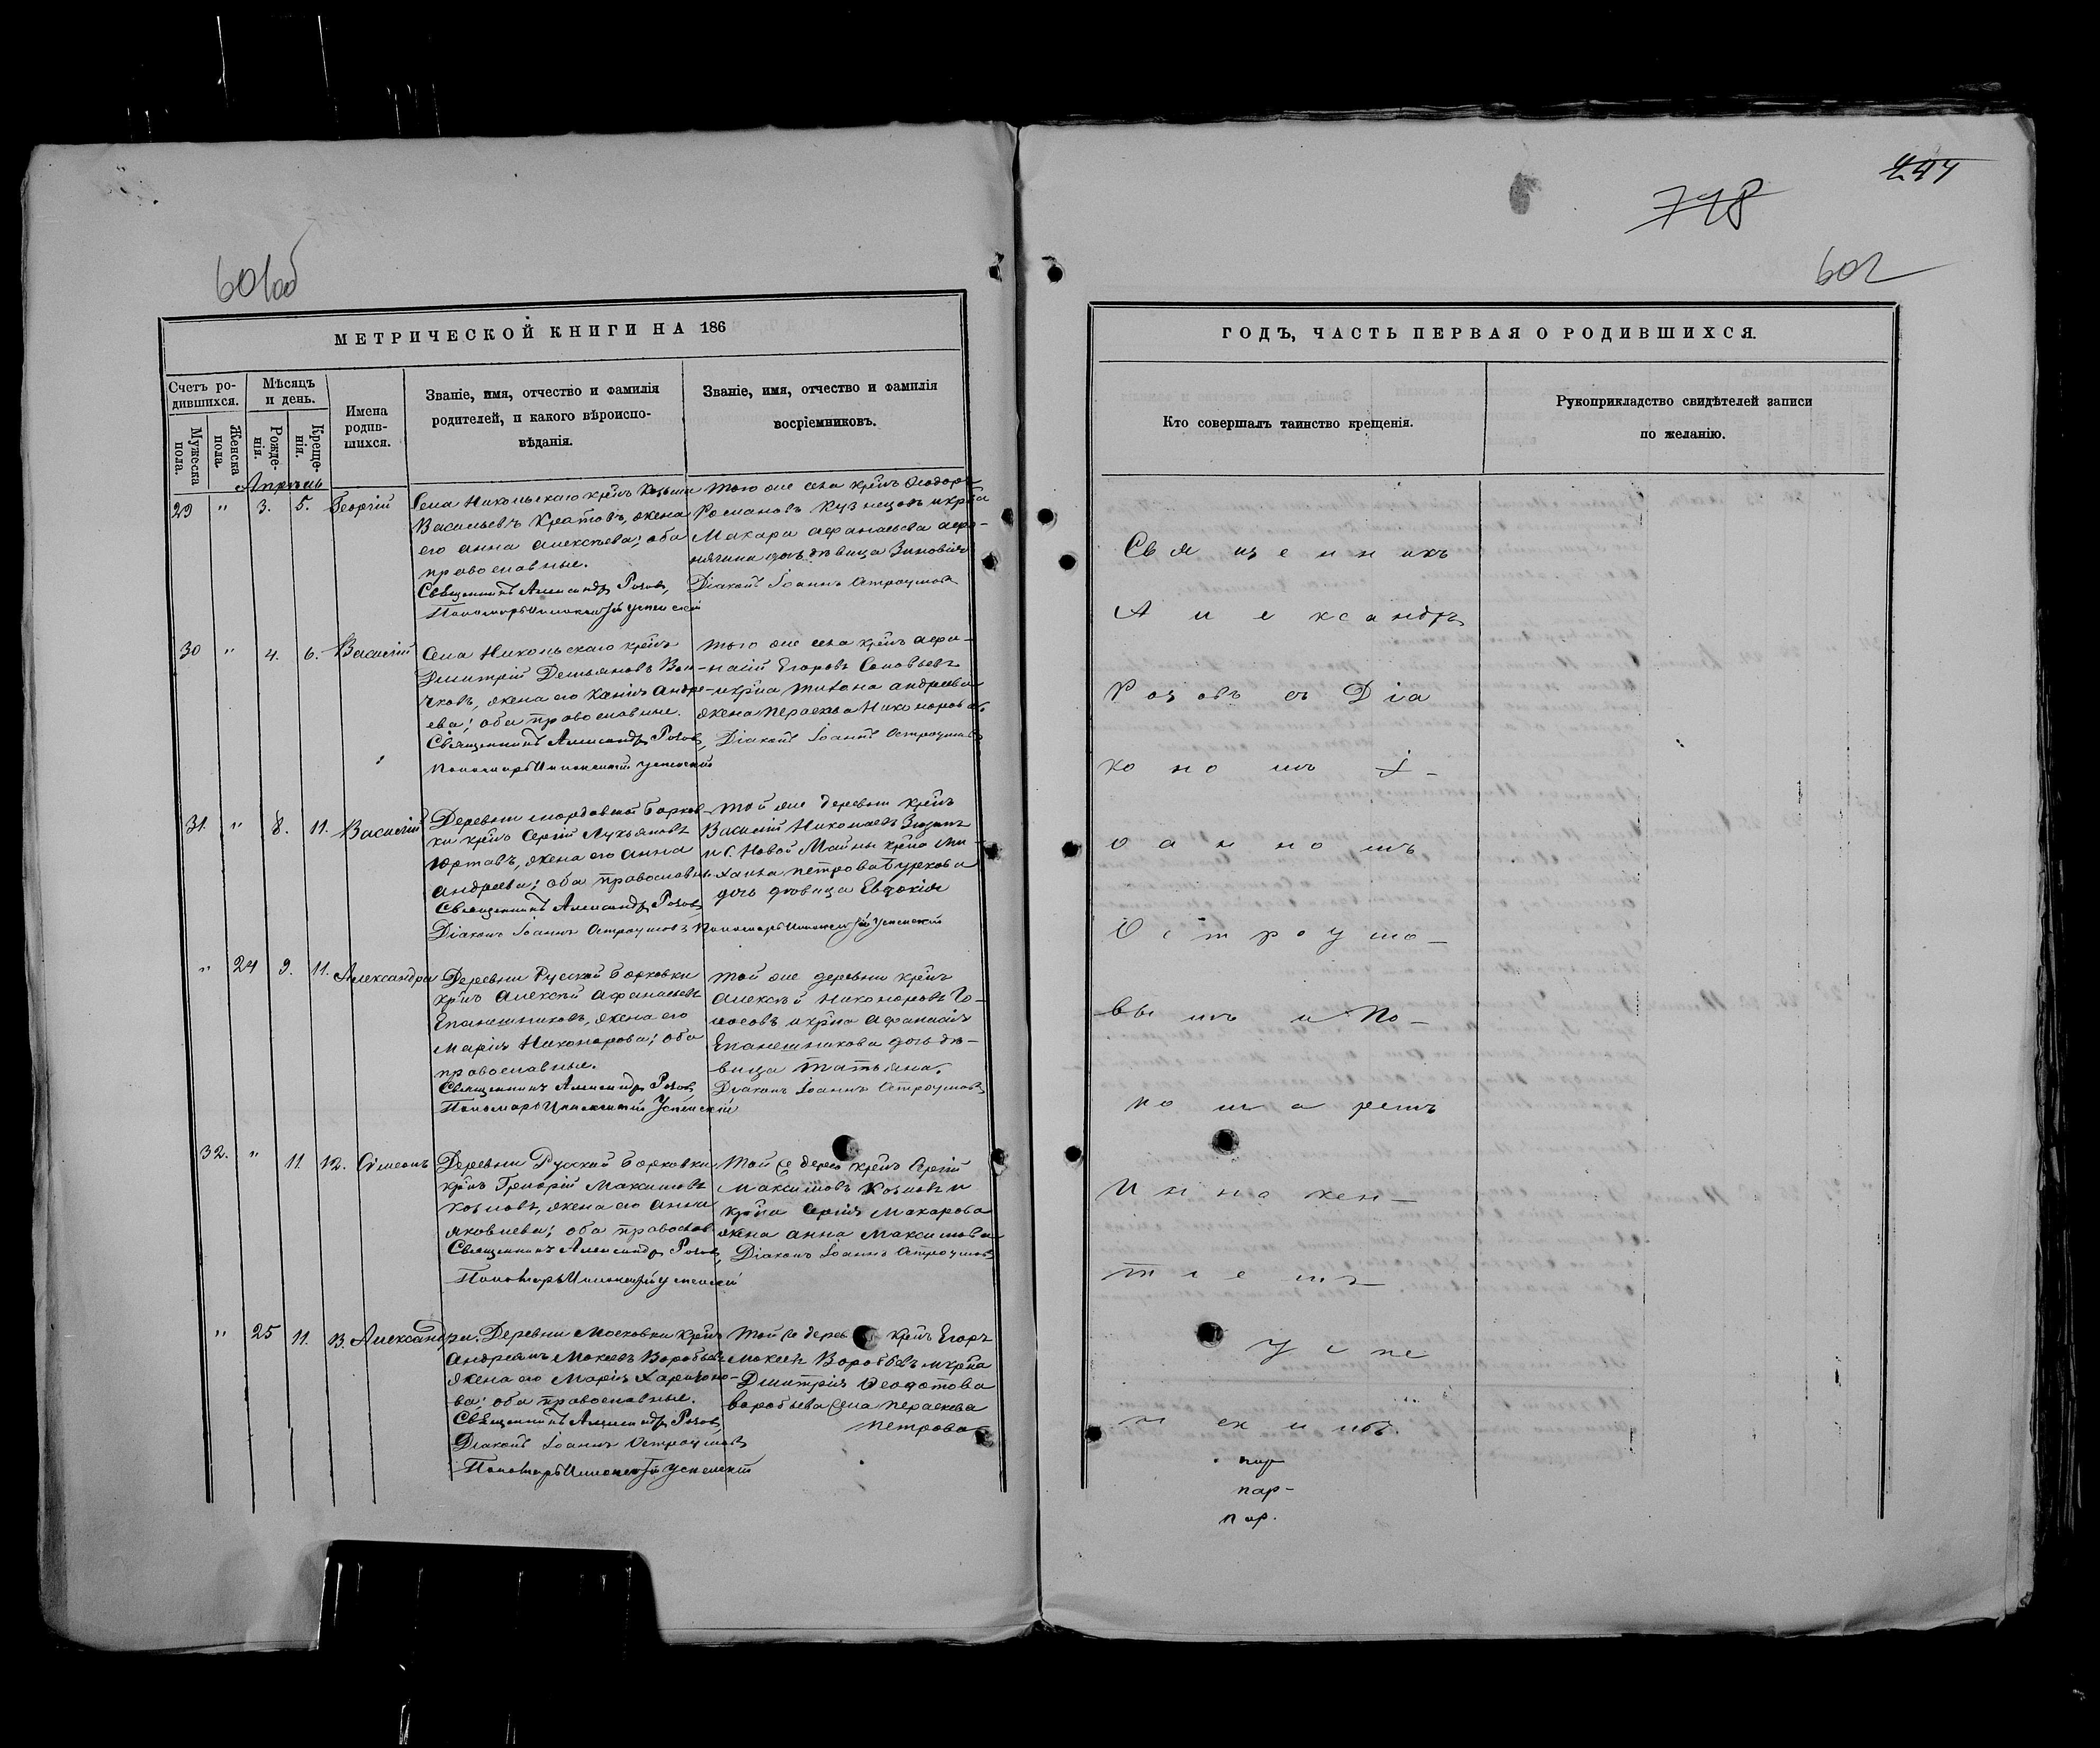 601об
МЕТРИЧЕСКОЙ КНИГИ НА 186
Счетъ ро-
дившихся.
Мужеска пола.
Женска пола.
Мѣсяцъ
и день.
Рожде-
нія.
Креще-
нія.
Имена
родив-
шихся.
Званіе, имя, отчество и фамилія
родителей, и какого вѣроиспо-
вѣданія.
Званіе, имя, отчество и фамилія
восріемниковъ.
Апрѣль
29 " 3. 5. Георгій
Села Никольскаго крѣнъ Козьма
Васильевъ Кратовъ, жена
его Анна Алексѣева; оба
православные.
Священникъ Александръ Розовъ,
Пономарь Иннокентій Успенскій
того же села крѣнъ Ѳеодоръ
Романовъ Кузнецовъ и крѣна
Макара Афанасьева
дочь дѣвица Зиновія
Діаконъ Іоаннъ Остроумовъ
30 " 4. 6. Василій
Села Никольскаго крѣнъ
Димитрій Демьяновъ Вол-
чковъ, жена его Ксанія Андре-
ева; оба православные.
Священникъ Александръ Розовъ,
Пономарь Иннокентій Успенскій
того же села крѣнъ Афа-
насій Егоровъ Соловьевъ
и крѣна Титона Андреева
жена Параскева Никонорова.
Діаконъ Іоаннъ Остроумовъ
31. " 8. 11. Василій
Деревни мордовской Борков-
ки крѣнъ Сергій Лукьяновъ
Юртавъ, жена его Анна
Андреева; оба православные
Священникъ Александръ Розовъ
Діаконъ Іоаннъ Остроумовъ
той же деревни крѣнъ
Василій Николаевъ
и с. Новой Майны крѣна Ми-
хаила Петрова Буркова
дочь дѣвица Евдокія
Пономарь Иннокентій Успенскій
" 24 9. 11. Александра
Деревни Русской Борковки
крѣнъ Алексѣй Афанасьевъ
Епанешниковъ, жена его
Марія Никонорова; оба
православные.
Священникъ Александръ Розовъ
Пономарь Иннокентій Успенскій
той же деревни крѣнъ
Алексѣй Никоноровъ Го-
лосовъ и крѣна Афанасія
Епанешникова дочь дѣ-
вица Татьяна.
Діаконъ Іоаннъ Остроумовъ
32. " 11 12. Симеонъ
Деревни Русской Борковки
крѣнъ Григорій Максимовъ
Козловъ, жена его Анна
Яковлева; оба православ.
Священникъ Александръ Розовъ,
Пономарь Иннокентій Успенскій
той же дерев. крѣнъ Сергій
Максимовъ Козловъ и
крѣна Сергія Макарова
жена Анна Максимова
Діаконъ Іоаннъ Остроумовъ
" 25 11. 13. Александра.
Деревни Московки крѣнъ
Андреянъ Мокеевъ Воробьевъ
жена его Марія Харитоно-
ва; оба православные.
Священникъ Александръ Розовъ
Діаконъ Іоаннъ Остроумовъ
Пономарь Иннокентій Успенскій
той же дерев. крѣнъ Егоръ
Мокеевъ Воробьевъ и крѣна
Димитрія Ѳеодотова
Воробьева жена Параскева
Петрова
718
602
ГОДЪ, ЧАСТЬ ПЕРВАЯ О РОДИВШИХСЯ.
Кто совершалъ таинство крещенія.
Рукоприкладство свидѣтелей записи
по желанію.
Священникъ
Александръ
Розовъ съ Діа
кономъ І-
оанномъ
Остроумо-
вымъ и По-
номаремъ
Иннокен-
тіемъ
Успе
нскимъ.
пар-
пар.